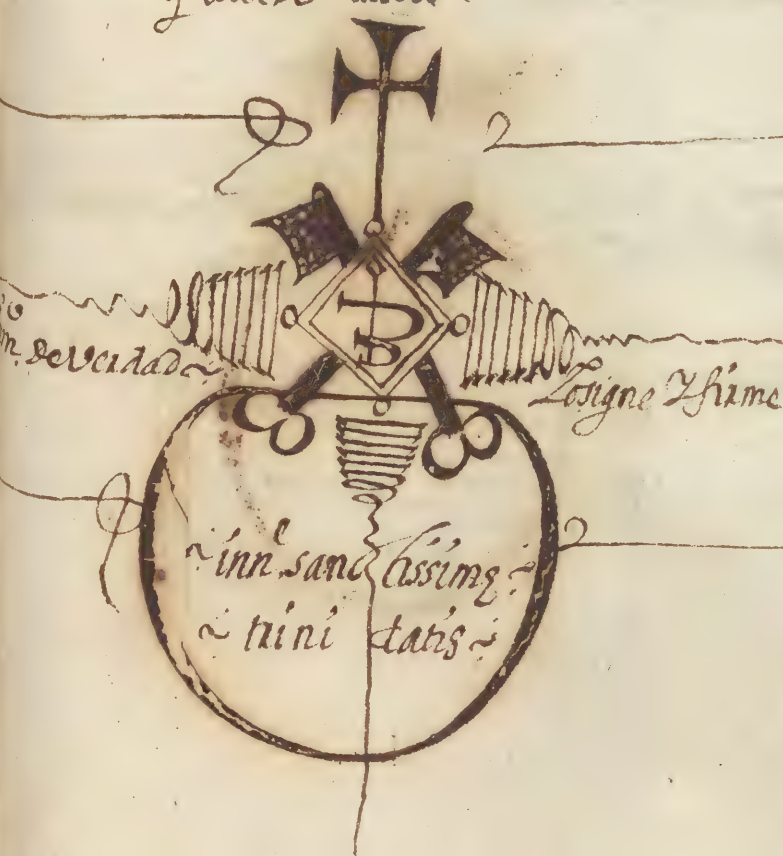 de verdad Lo signe Y firme
inn sanctissimę
trinitatis